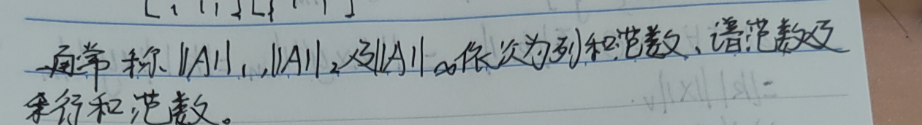 通常称‖A‖₁,‖A‖₂及‖A‖∞依次为列和范数、谱范数及
行和范数。